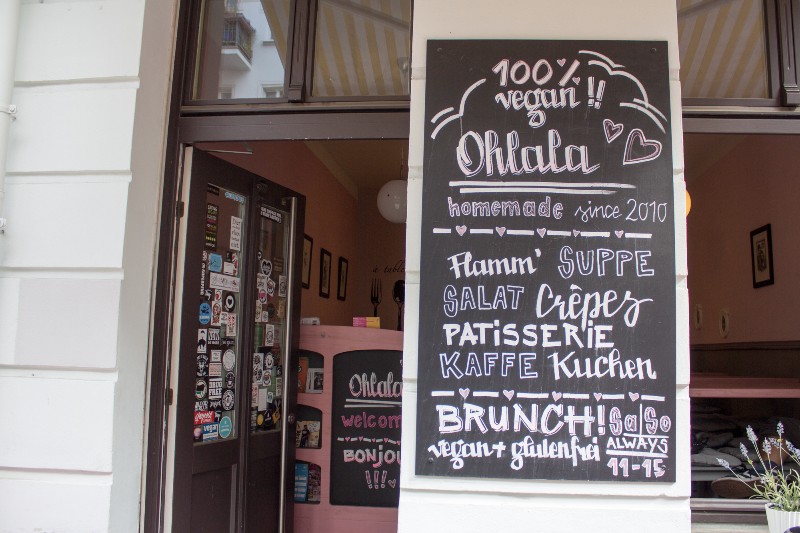 100% vegan!!
Ohlala
homemade since 2010
Flamm' SUPPE
SALAT Crêpes
PATISSERIE
KAFFE Kuchen
BRUNCH! SaSo
vegan + glutenfrei ALWAYS
11-15
a table
Ohlala
welcome
BONJOU
!!!
vegan